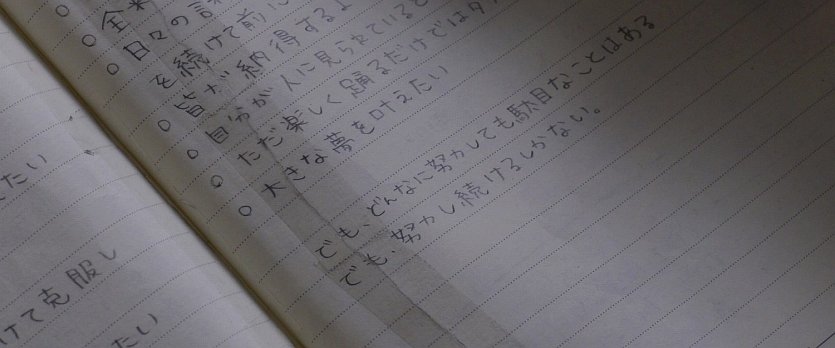 たい
けて克服し
たい
○全
○日々の
を続けて前に
○皆が納得する
○自分が人に見られていると
○ただ楽しく踊るだけではダ
○大きな夢を叶えたい
でも、どんなに努力しても駄目なことはある
でも、努力し続けるしかない。